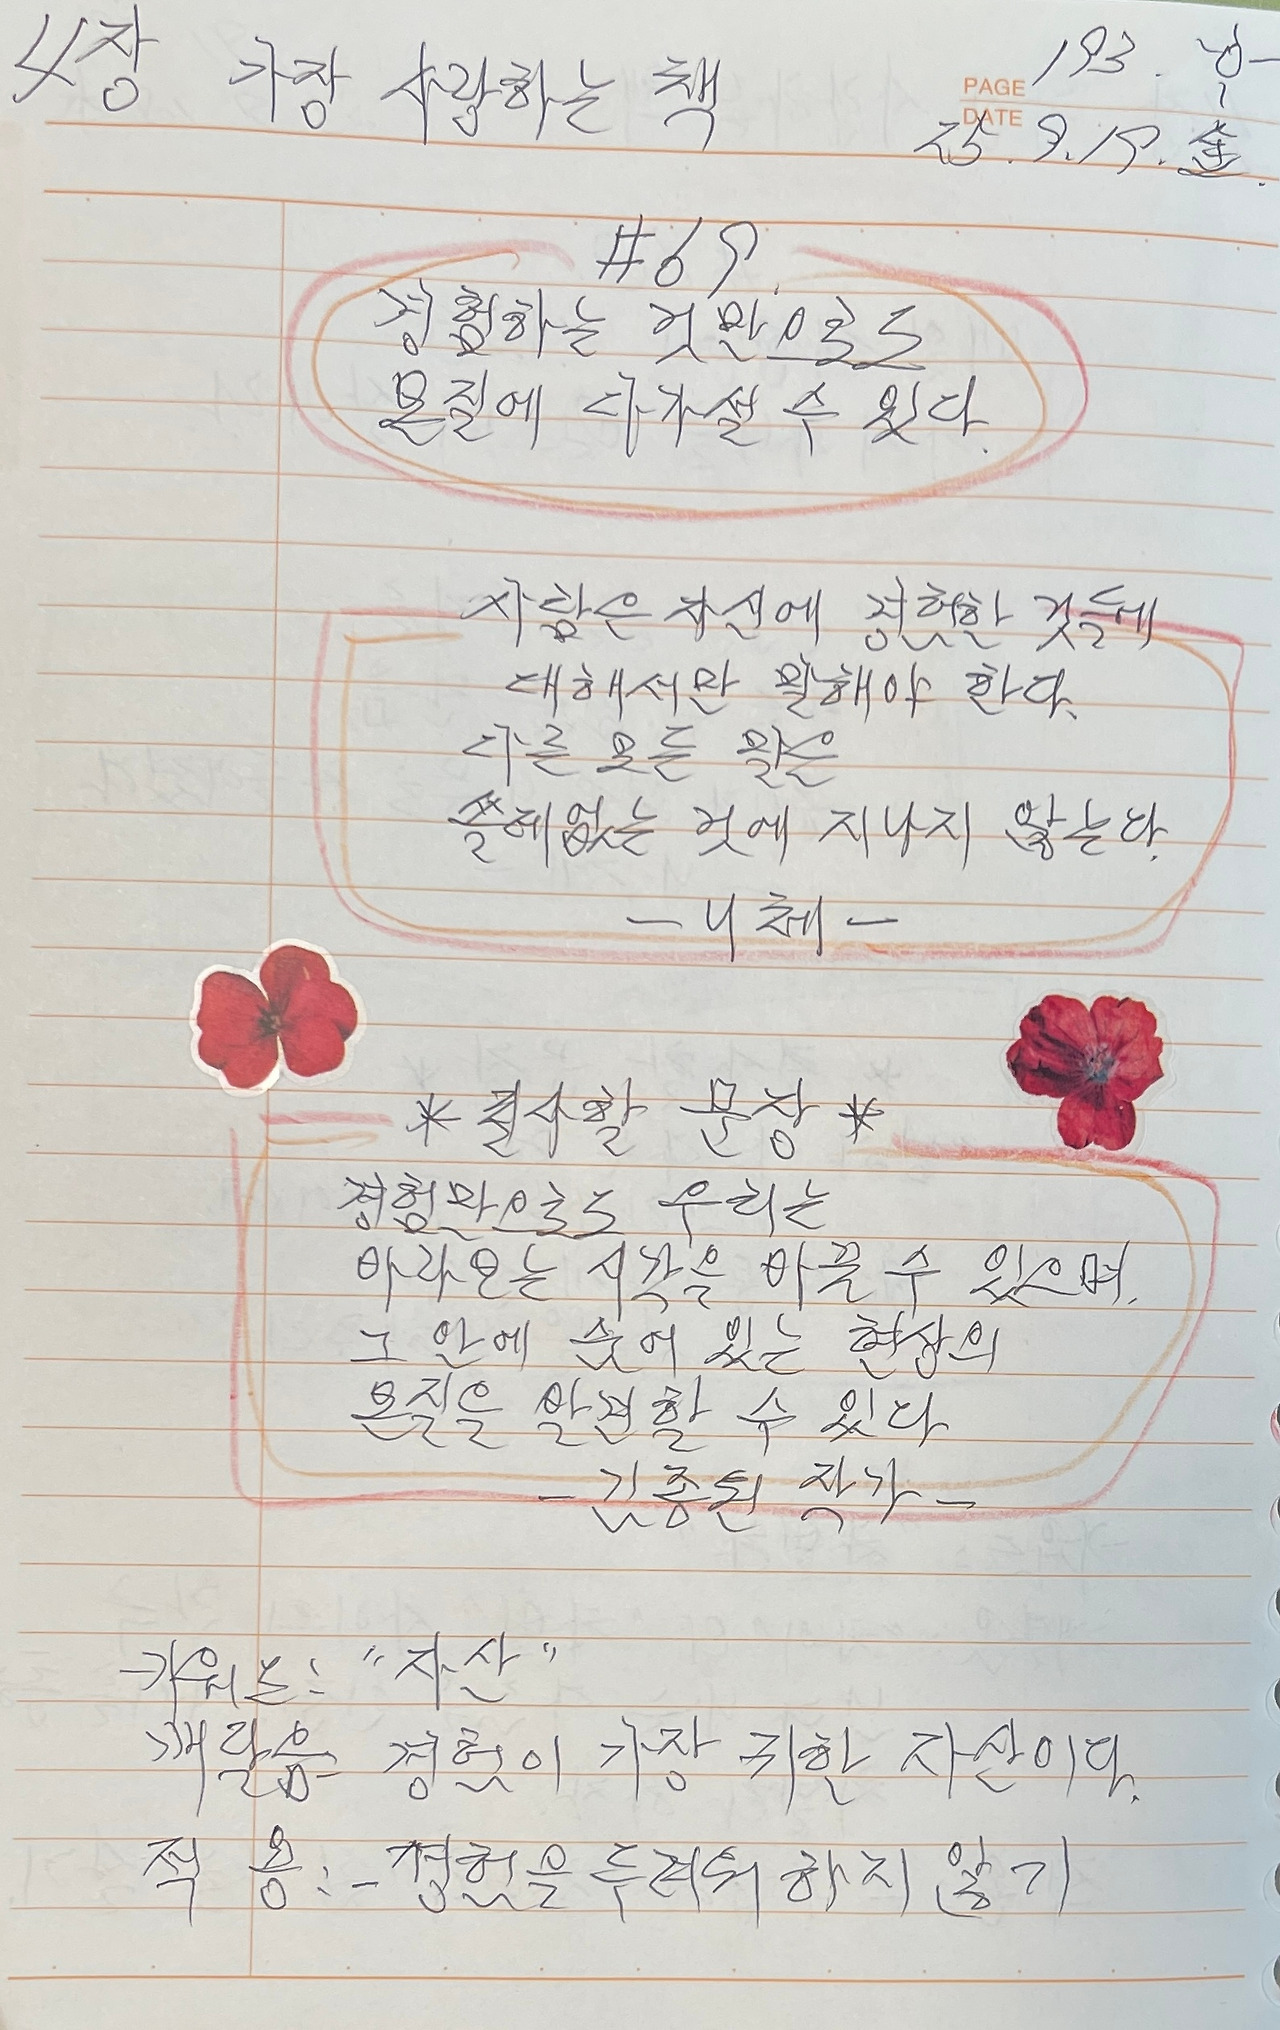 4장 가장 사랑하는 책
PAGE 193.
DATE 25. 9. 19. 金.
#69.
경험하는 것만으로도
본질에 다가설 수 있다.
사람은 자신에 경험한 것들에
대해서만 말해야 한다.
다른 모든 말은
쓸데없는 것에 지나지 않는다.
- 니체 -
* 필사할 문장 *
경험만으로도 우리는
바라보는 시각을 바꿀 수 있으며,
그 안에 숨어 있는 현상의
본질을 발견할 수 있다
- 김종원 작가 -
키워드: "자산"
깨달음 경험이 가장 귀한 자산이다.
적 용: - 경험을 두려워 하지 않기